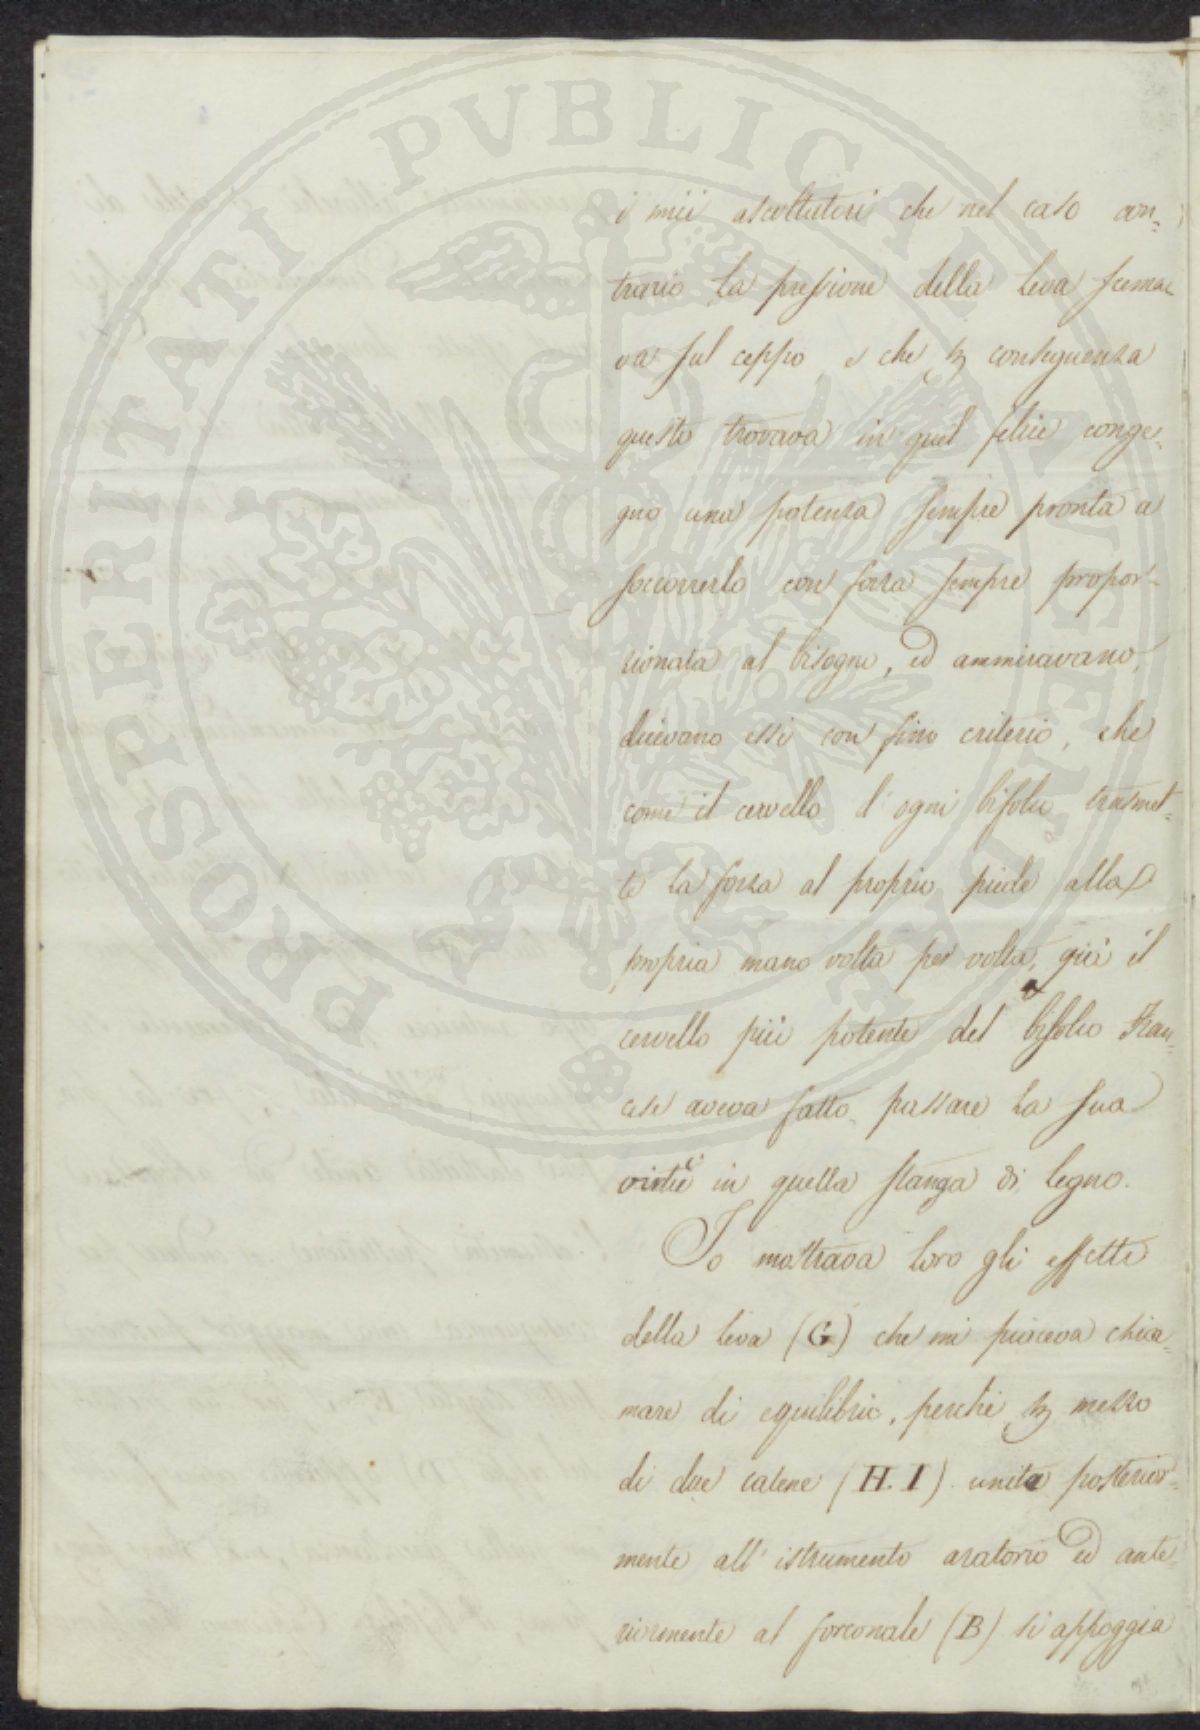 PROSPERITATI PVBLICAE AVGENDAE
i miei ascoltatori che nel caso con=
trario la pressione della leva scema=
va sul ceppo, e che conseguenza
questo trovava in quel felice conge=
gno una potenza sempre pronta a
soccorrerlo con forza sempre propor=
zionata al bisogno, ed ammiravano,
dicevano essi con fino criterio, che
come il cervello d'ogni bifolco trasmet=
te la forza al proprio piede alla
propria mano volta per volta, già il
cervello più potente del bifolco Fran=
cese aveva fatto passare la sua
virtù in quella stanga di legno.
Io mostrava loro gli effetti
della leva (G) che mi piaceva chia=
mare di equilibrio, perchè mezzo
di due catene (H. I) unita posterior=
mente all'istrumento aratorio ed ante
riormente al forconale (B) si appoggia